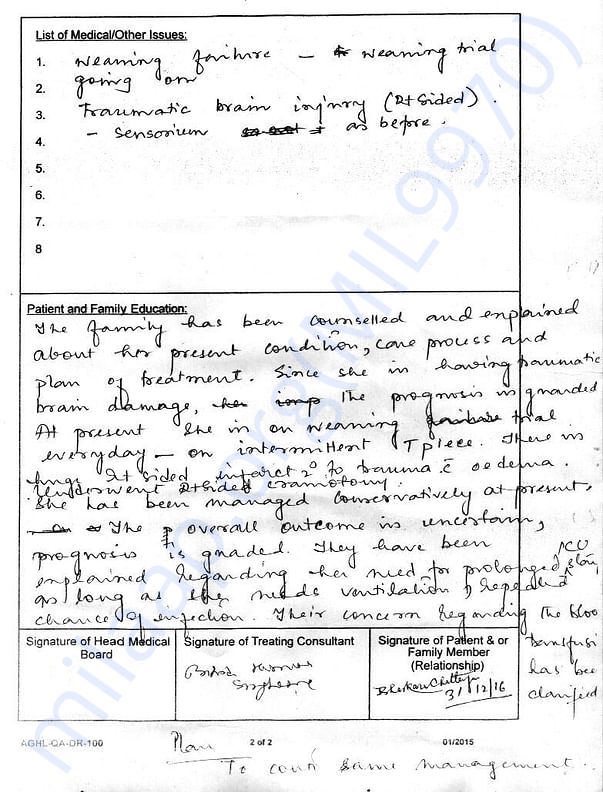 List of Medical/Other Issues:
1. Weaning failure - weaning trial
going on
2.
3. Traumatic brain injury (Rt sided).
- Sensorium as before.
4.
5.
6.
7.
8
Patient and Family Education:
The family has been counselled and explained
about her present condition, care process and
plan of treatment. Since she is having traumatic
brain damage, the prognosis is guarded
At present she is on weaning trial
everyday - on intermittent T piece. There is
huge Rt sided infarct 2° to trauma c̄ oedema.
Underwent Rt sided craniotomy.
She has been managed conservatively at present,
The overall outcome is uncertain,
prognosis is guaded. They have been
explained regarding her need for prolonged ICU stay,
as long as she needs ventilation, & repeated
chance of infection. Their concern regarding the bloo
transfusi
has be
clarified
Signature of Head Medical Board
Signature of Treating Consultant
Signature of Patient & or Family Member (Relationship)
31/12/16
AGHL-QA-DR-100 2 of 2 01/2015
Plan
To cont same management.
milaap.org(MIL9970)